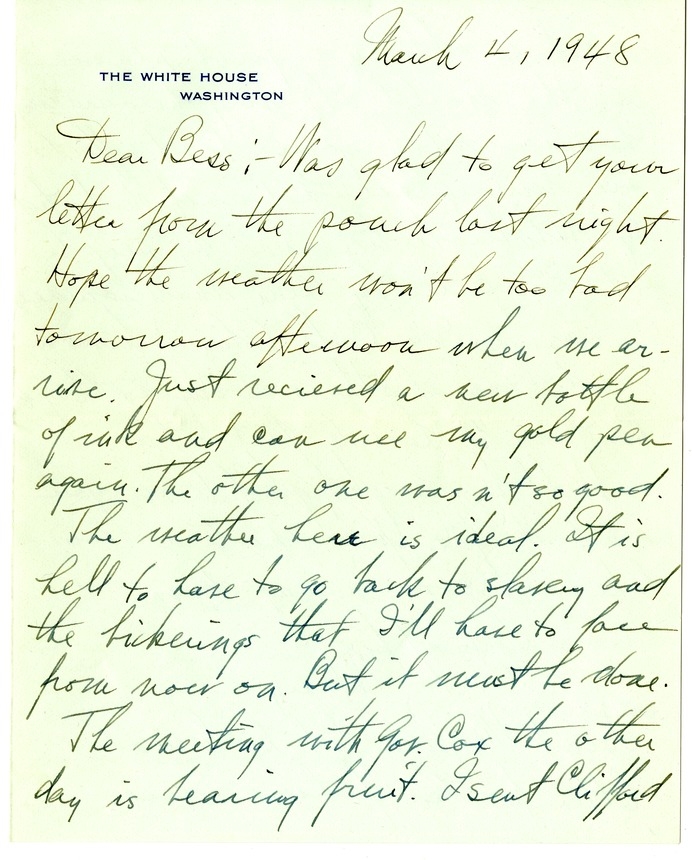 March 4, 1948
THE WHITE HOUSE
WASHINGTON
Dear Bess:- Was glad to get your
letter from the pouch last night.
Hope the weather won't be too bad
tomorrow afternoon when we ar-
rive. Just recieved a new bottle
of ink and can use my gold pen
again. The other one wasn't so good.
The weather here is ideal. It is
hell to have to go back to slavery and
the bickerings that I'll have to face
from now on. But it must be done.
The meeting with Gov. Cox the other
day is bearing fruit. I sent Clifford